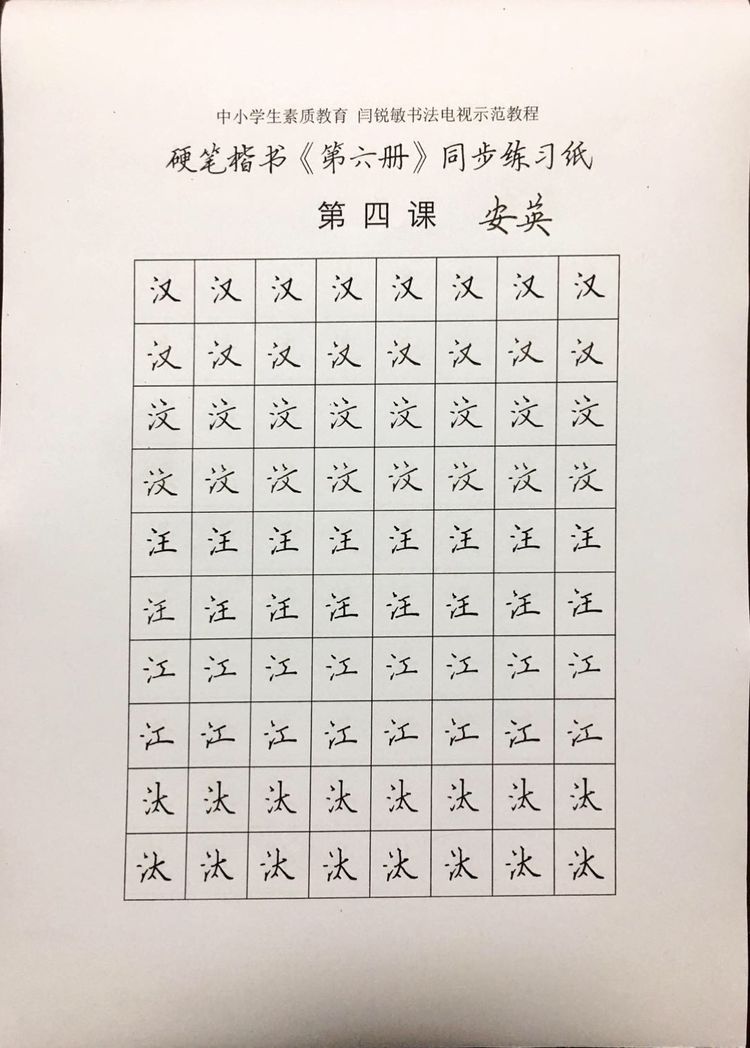 中小学生素质教育 闫锐敏书法电视示范教程
硬笔楷书《第六册》同步练习纸
第四课 安英
汉 汉 汉 汉 汉 汉 汉 汉
汉 汉 汉 汉 汉 汉 汉 汉
汶 汶 汶 汶 汶 汶 汶 汶
汶 汶 汶 汶 汶 汶 汶 汶
汪 汪 汪 汪 汪 汪 汪 汪
汪 汪 汪 汪 汪 汪 汪 汪
江 江 江 江 江 江 江 江
江 江 江 江 江 江 江 江
汰 汰 汰 汰 汰 汰 汰 汰
汰 汰 汰 汰 汰 汰 汰 汰